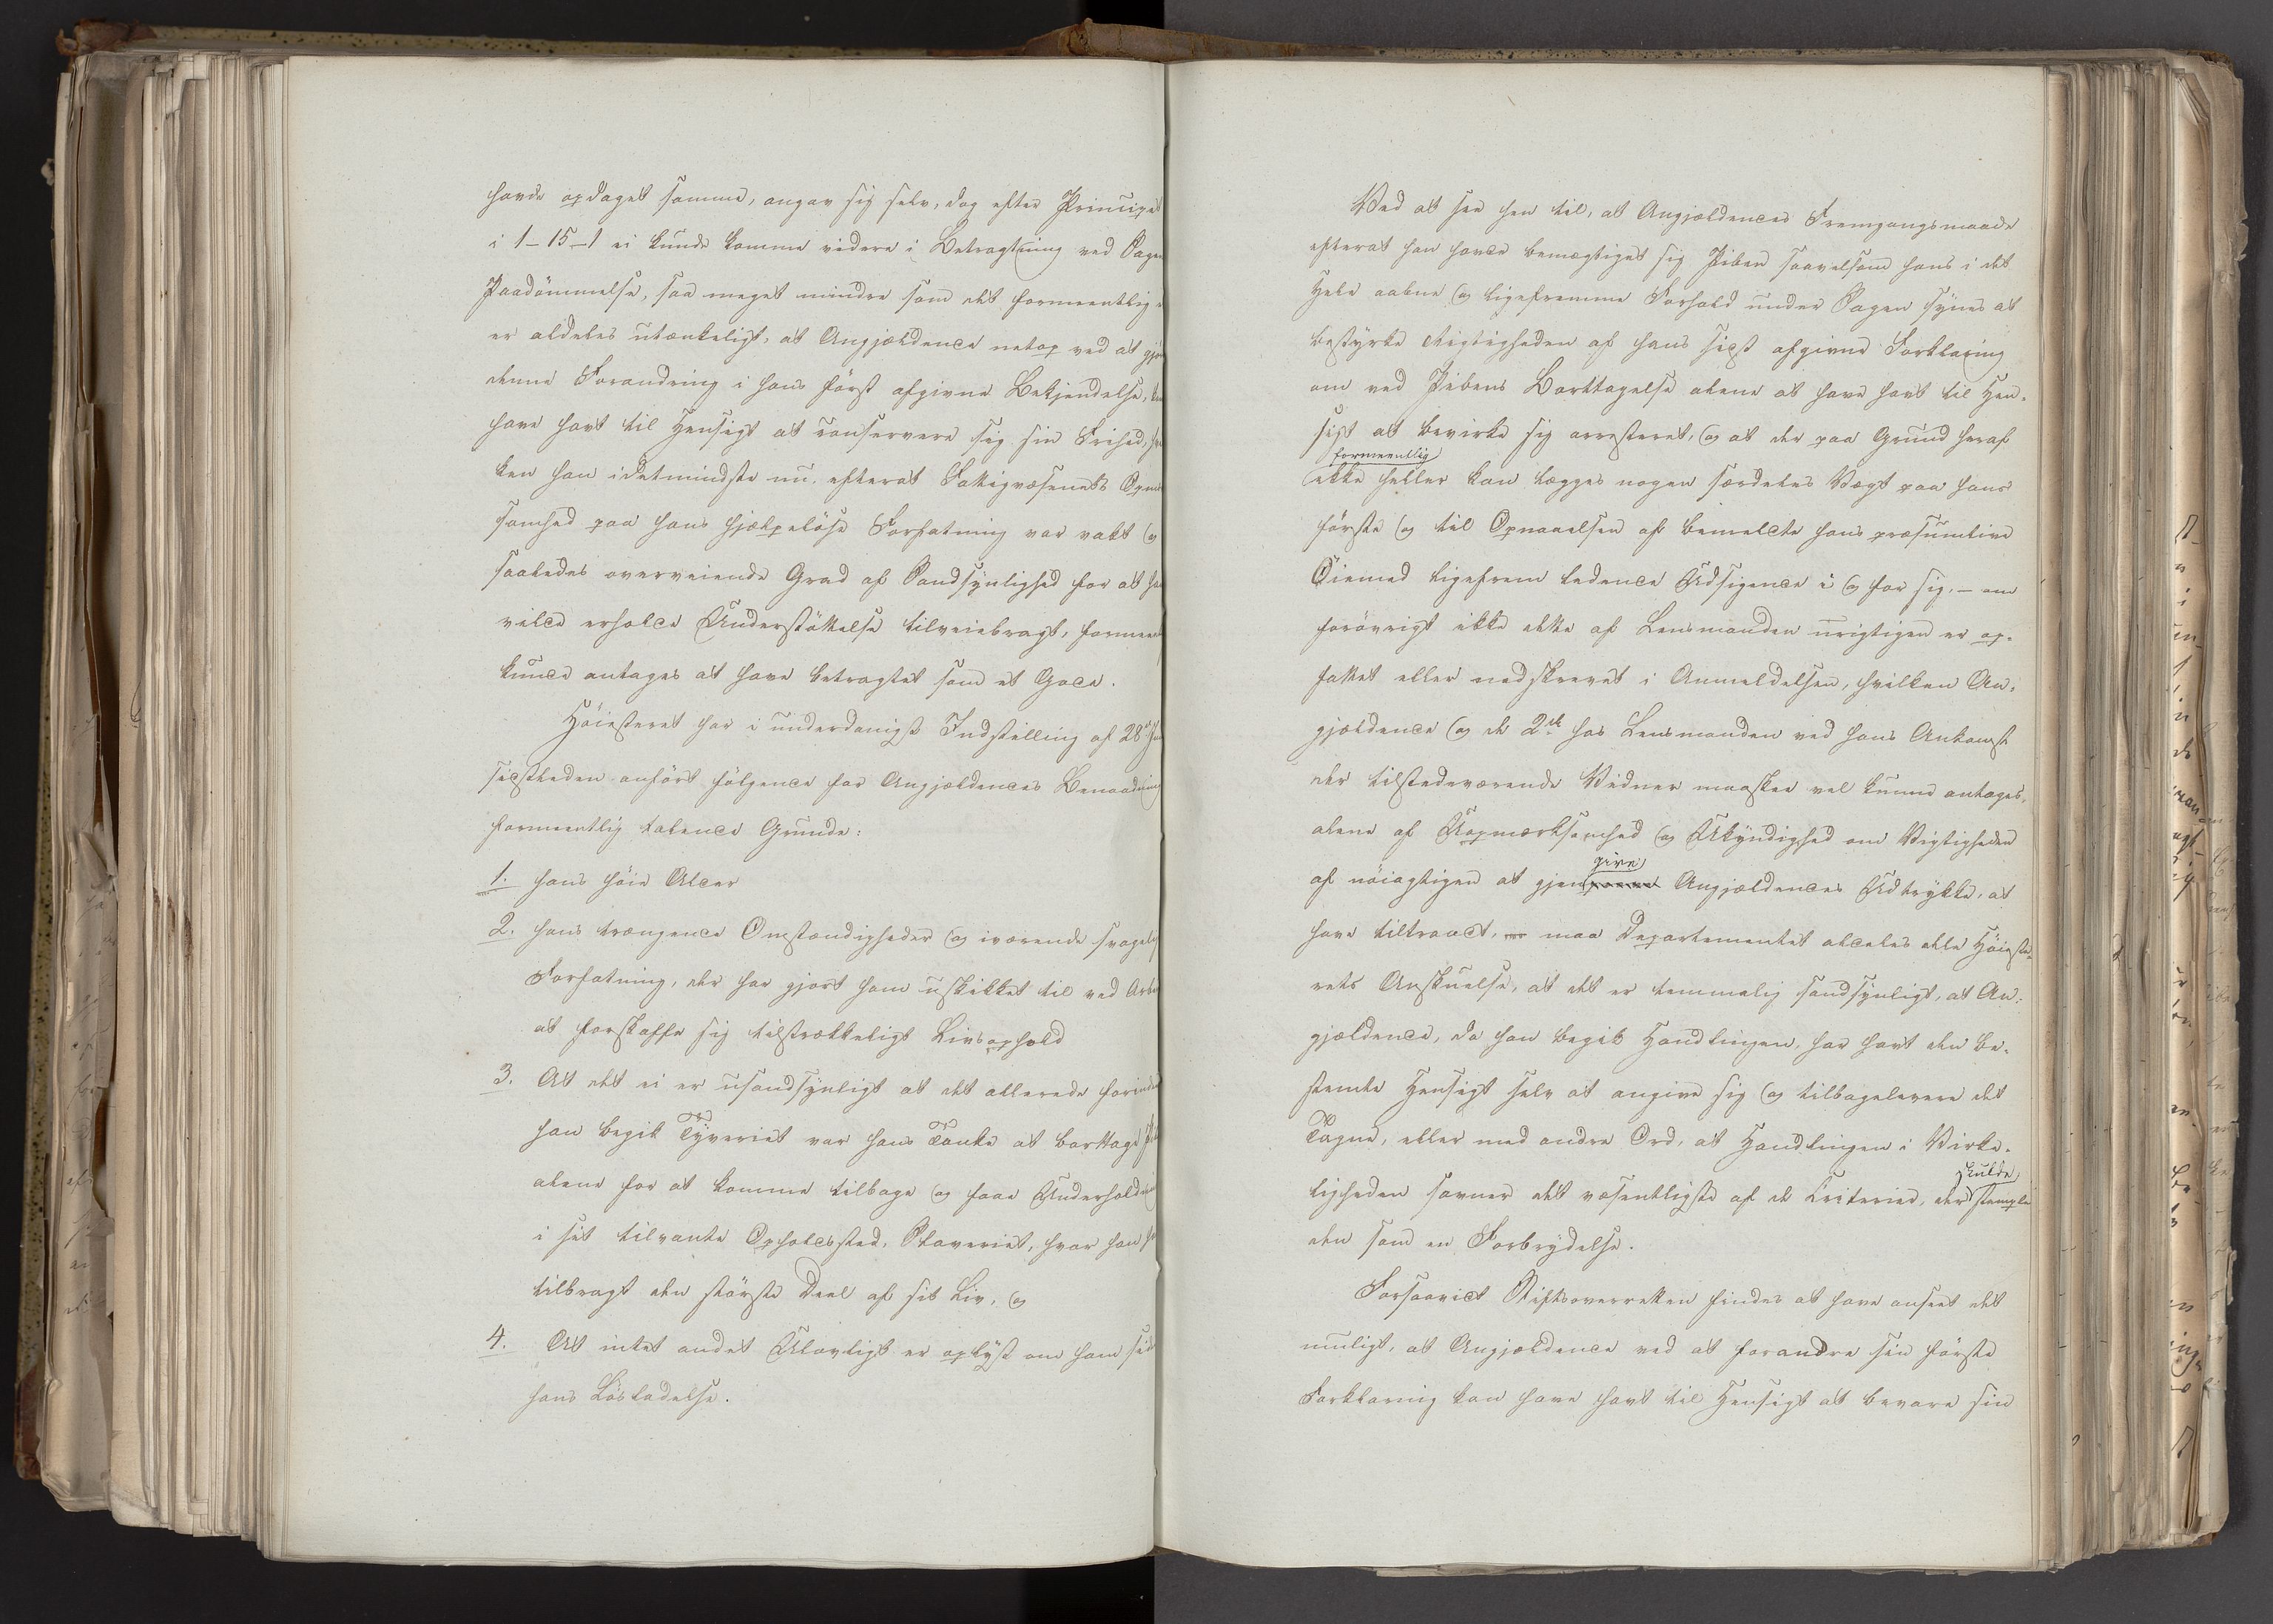 havde opdaget samme, angav sig selv, dog efter Princip
i 1-15-1 ei kunde komme videre i Betragtning ved Sagen
Paadömmelse, saa meget mindre som det formeentlig
er aldeles utænkeligt, at Angjældende netop ved at gjø
denne Forandring i hans först afgivne Bekjendelse,
have havt til Hensigt at conservere sig sin Frihed,
ken han idetmindste nu, efterat Fattigvæsenets Opm
somhed paa hans hjælpelöse Forfatning var vakt og
saaledes overveiende Grad af Sandsynlighed for at ha
vilde erholde Understöttelse tilveiebragt, formee
kunde antages at have betragtet som et Gode.
Höiesteret har i underdanigst Indstilling af 28de
sidstleden anfört fölgende for Angjældendes Benaadning
formeentlig talende Grunde:
1. hans höie Alder
2. hans trængende Omstændigheder og iværende svagel
Forfatning, der har gjort ham uskikket til ved Arbei
at forskaffe sig tilstrækkeligt Livsophold
3. At det ei er usandsynligt at det allerede forinden
han begik Tyveriet var hans Tanke at borttage
alene for at komme tilbage og faae Underholdning
i sit tilvante Opholdssted, Slaveriet, hvor han
tilbragt den störste Deel af sit Liv, og
4. At intet andet Ulovligt er oplyst om ham sid
hans Lösladelse.
Ved at see hen til, at Angjældendes Fremgangsmaade
efterat han havde bemægtiget sig Piben saavelsom hans i det
Hele aabne og ligefremme Forhold under Sagen synes at
bestyrke Rigtigheden af hans sidst afgivne Forklaring
om ved Pibens Borttagelse alene at have havt til Hen-
sigt at bevirke sig arresteret, og at der paa Grund heraf
formeentlig
ikke heller kan lægges nogen særdeles Vægt paa hans
förste og til Opnaaelsen af bemeldte hans præsumtive
Öiemed ligefrem ledende Udsigende i og for sig, - om
forövrigt ikke dette af Lensmanden urigtigen er op-
fattet eller nedskrevet i Anmeldelsen, hvilken An-
gjældende og de 2de hos Lensmanden ved hans Ankomst
der tilstedeværende Vidner maaskee vel kunne antages,
alene af Uopmærksomhed og Ukyndighed om Vigtigheden
give
af nöiagtigen at gjen Angjældendes Udtrykke, at
have tiltraadt, maa Departementet aldeles dele Höieste-
rets Anskuelse, at det er temmelig sandsynligt, at An-
gjældende, da han begik Handlingen, har havt den be-
stemte Hensigt selv at angive sig og tilbagelevere det
Tagne, eller med andre Ord, at Handlingen i Virke-
skulde
ligheden savner det væsentligste af de Criterier, der stemple
den som en Forbrydelse.
Forsaavidt Stiftsoverretten findes at have anseet det
muligt, at Angjældende ved at forandre sin förste
Forklaring kan have havt til Hensigt at bevare sin